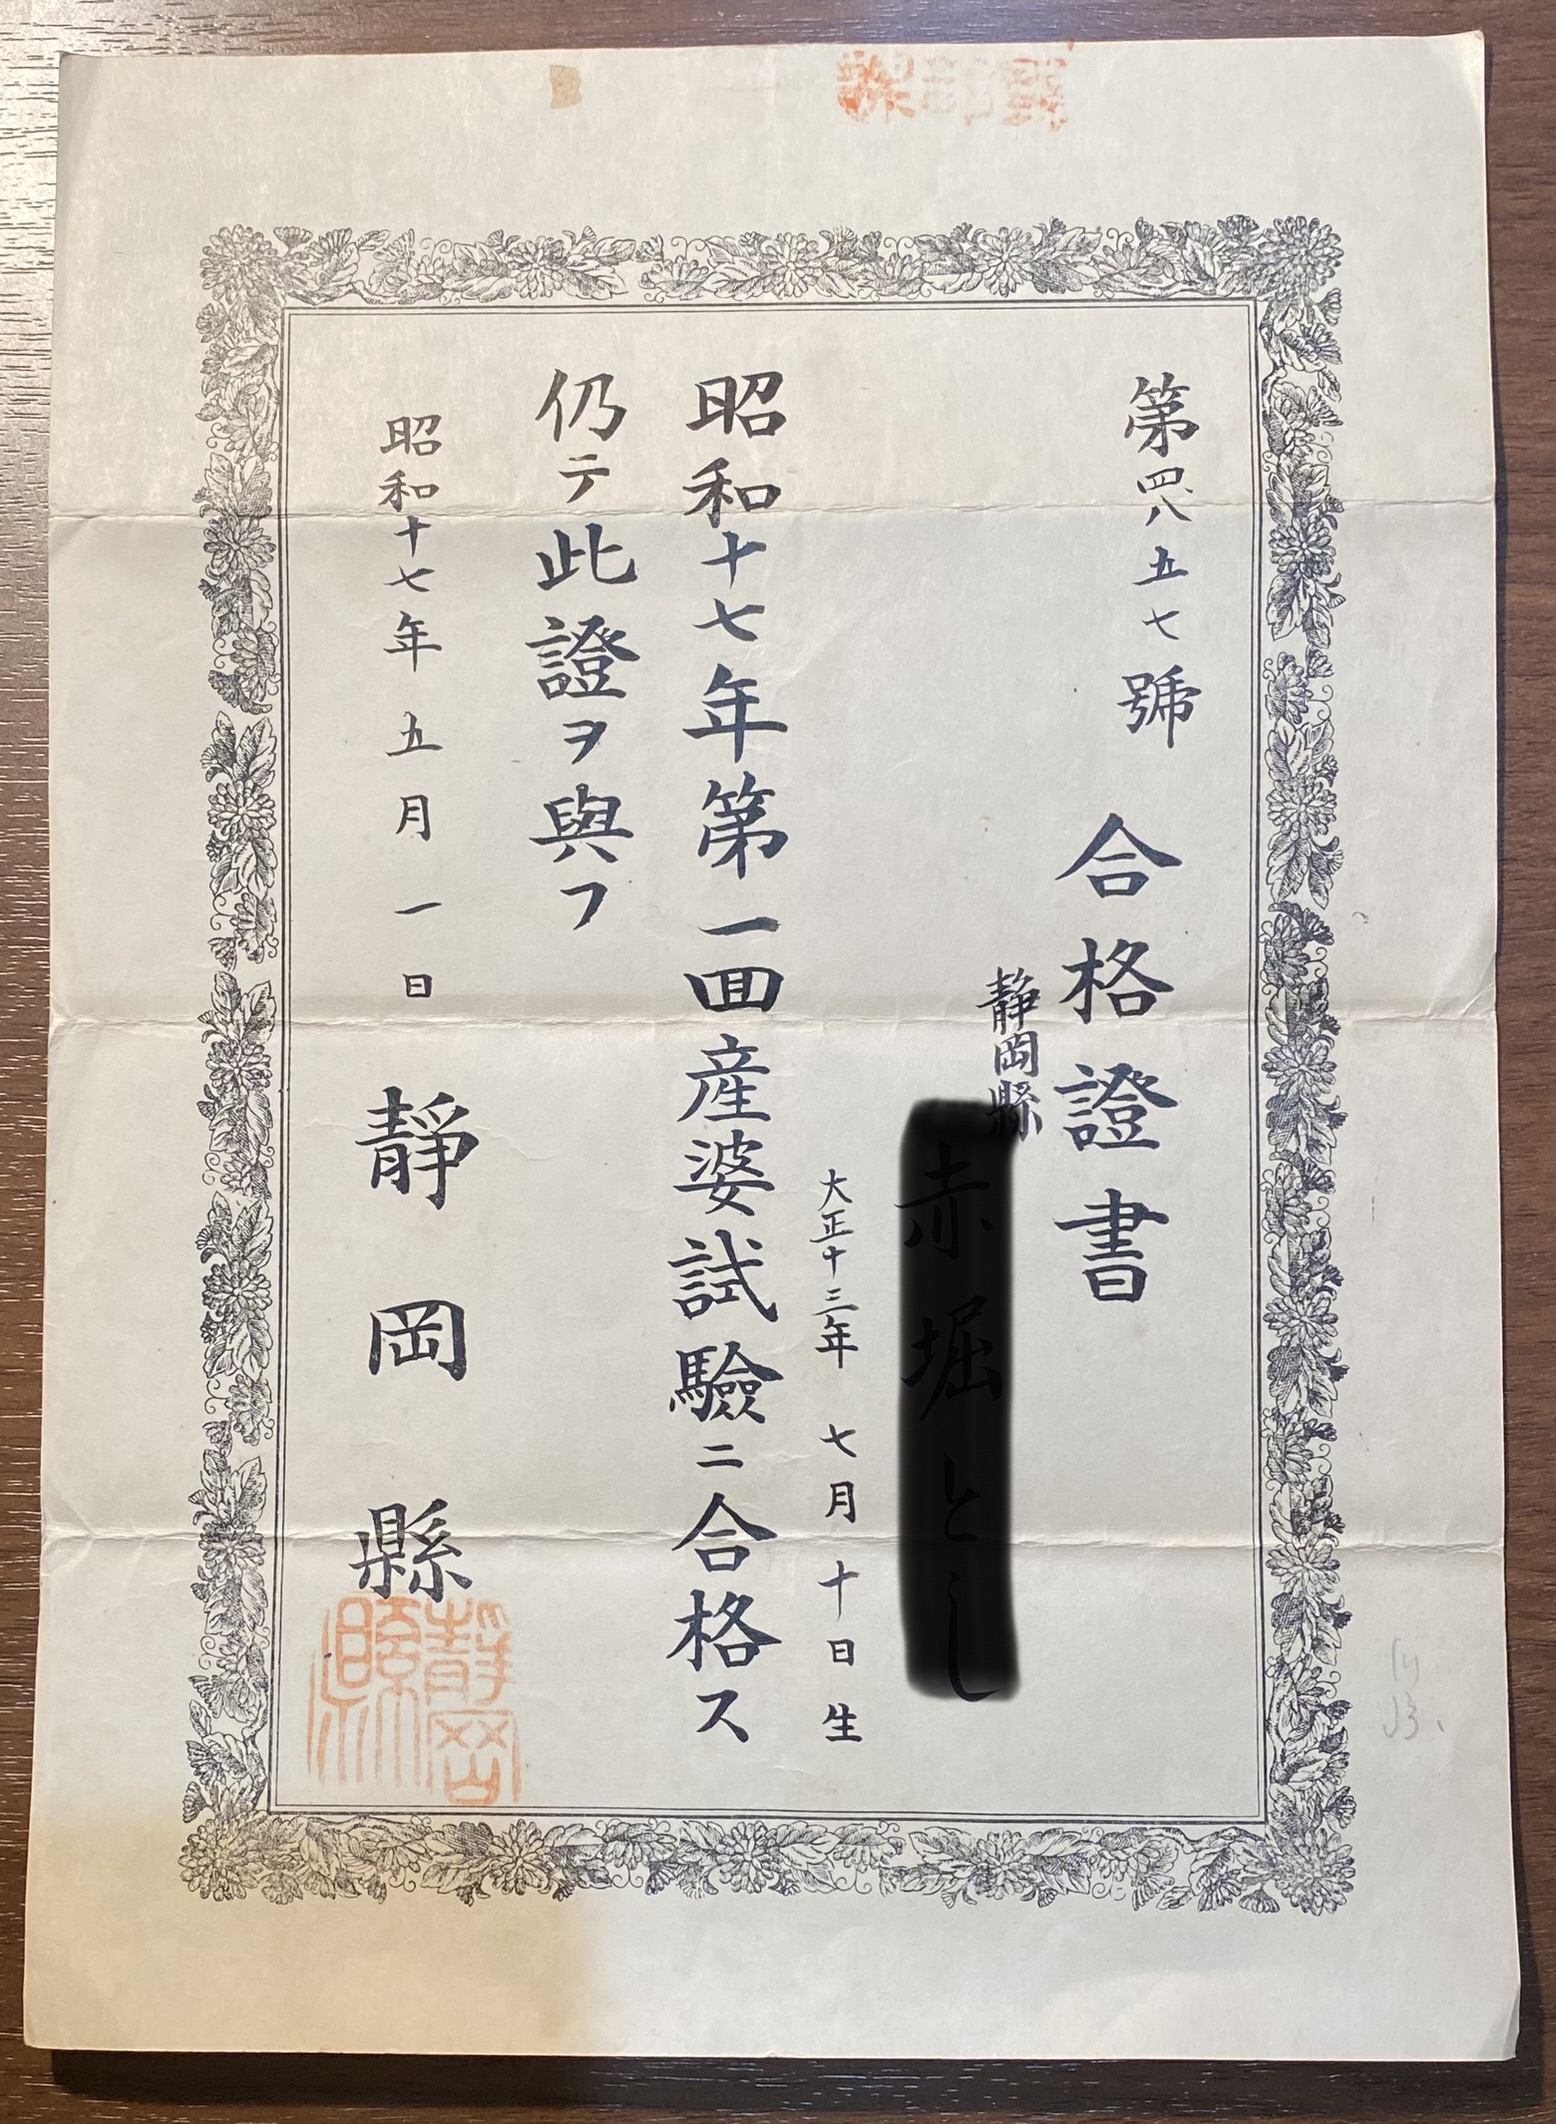 第四八五七號
合格證書
静岡縣
大正十三年 七月十日生
昭和十七年第一囬産婆試驗ニ合格ス
仍テ此證ヲ與フ
昭和十七年 五月一日
靜岡縣
靜岡縣